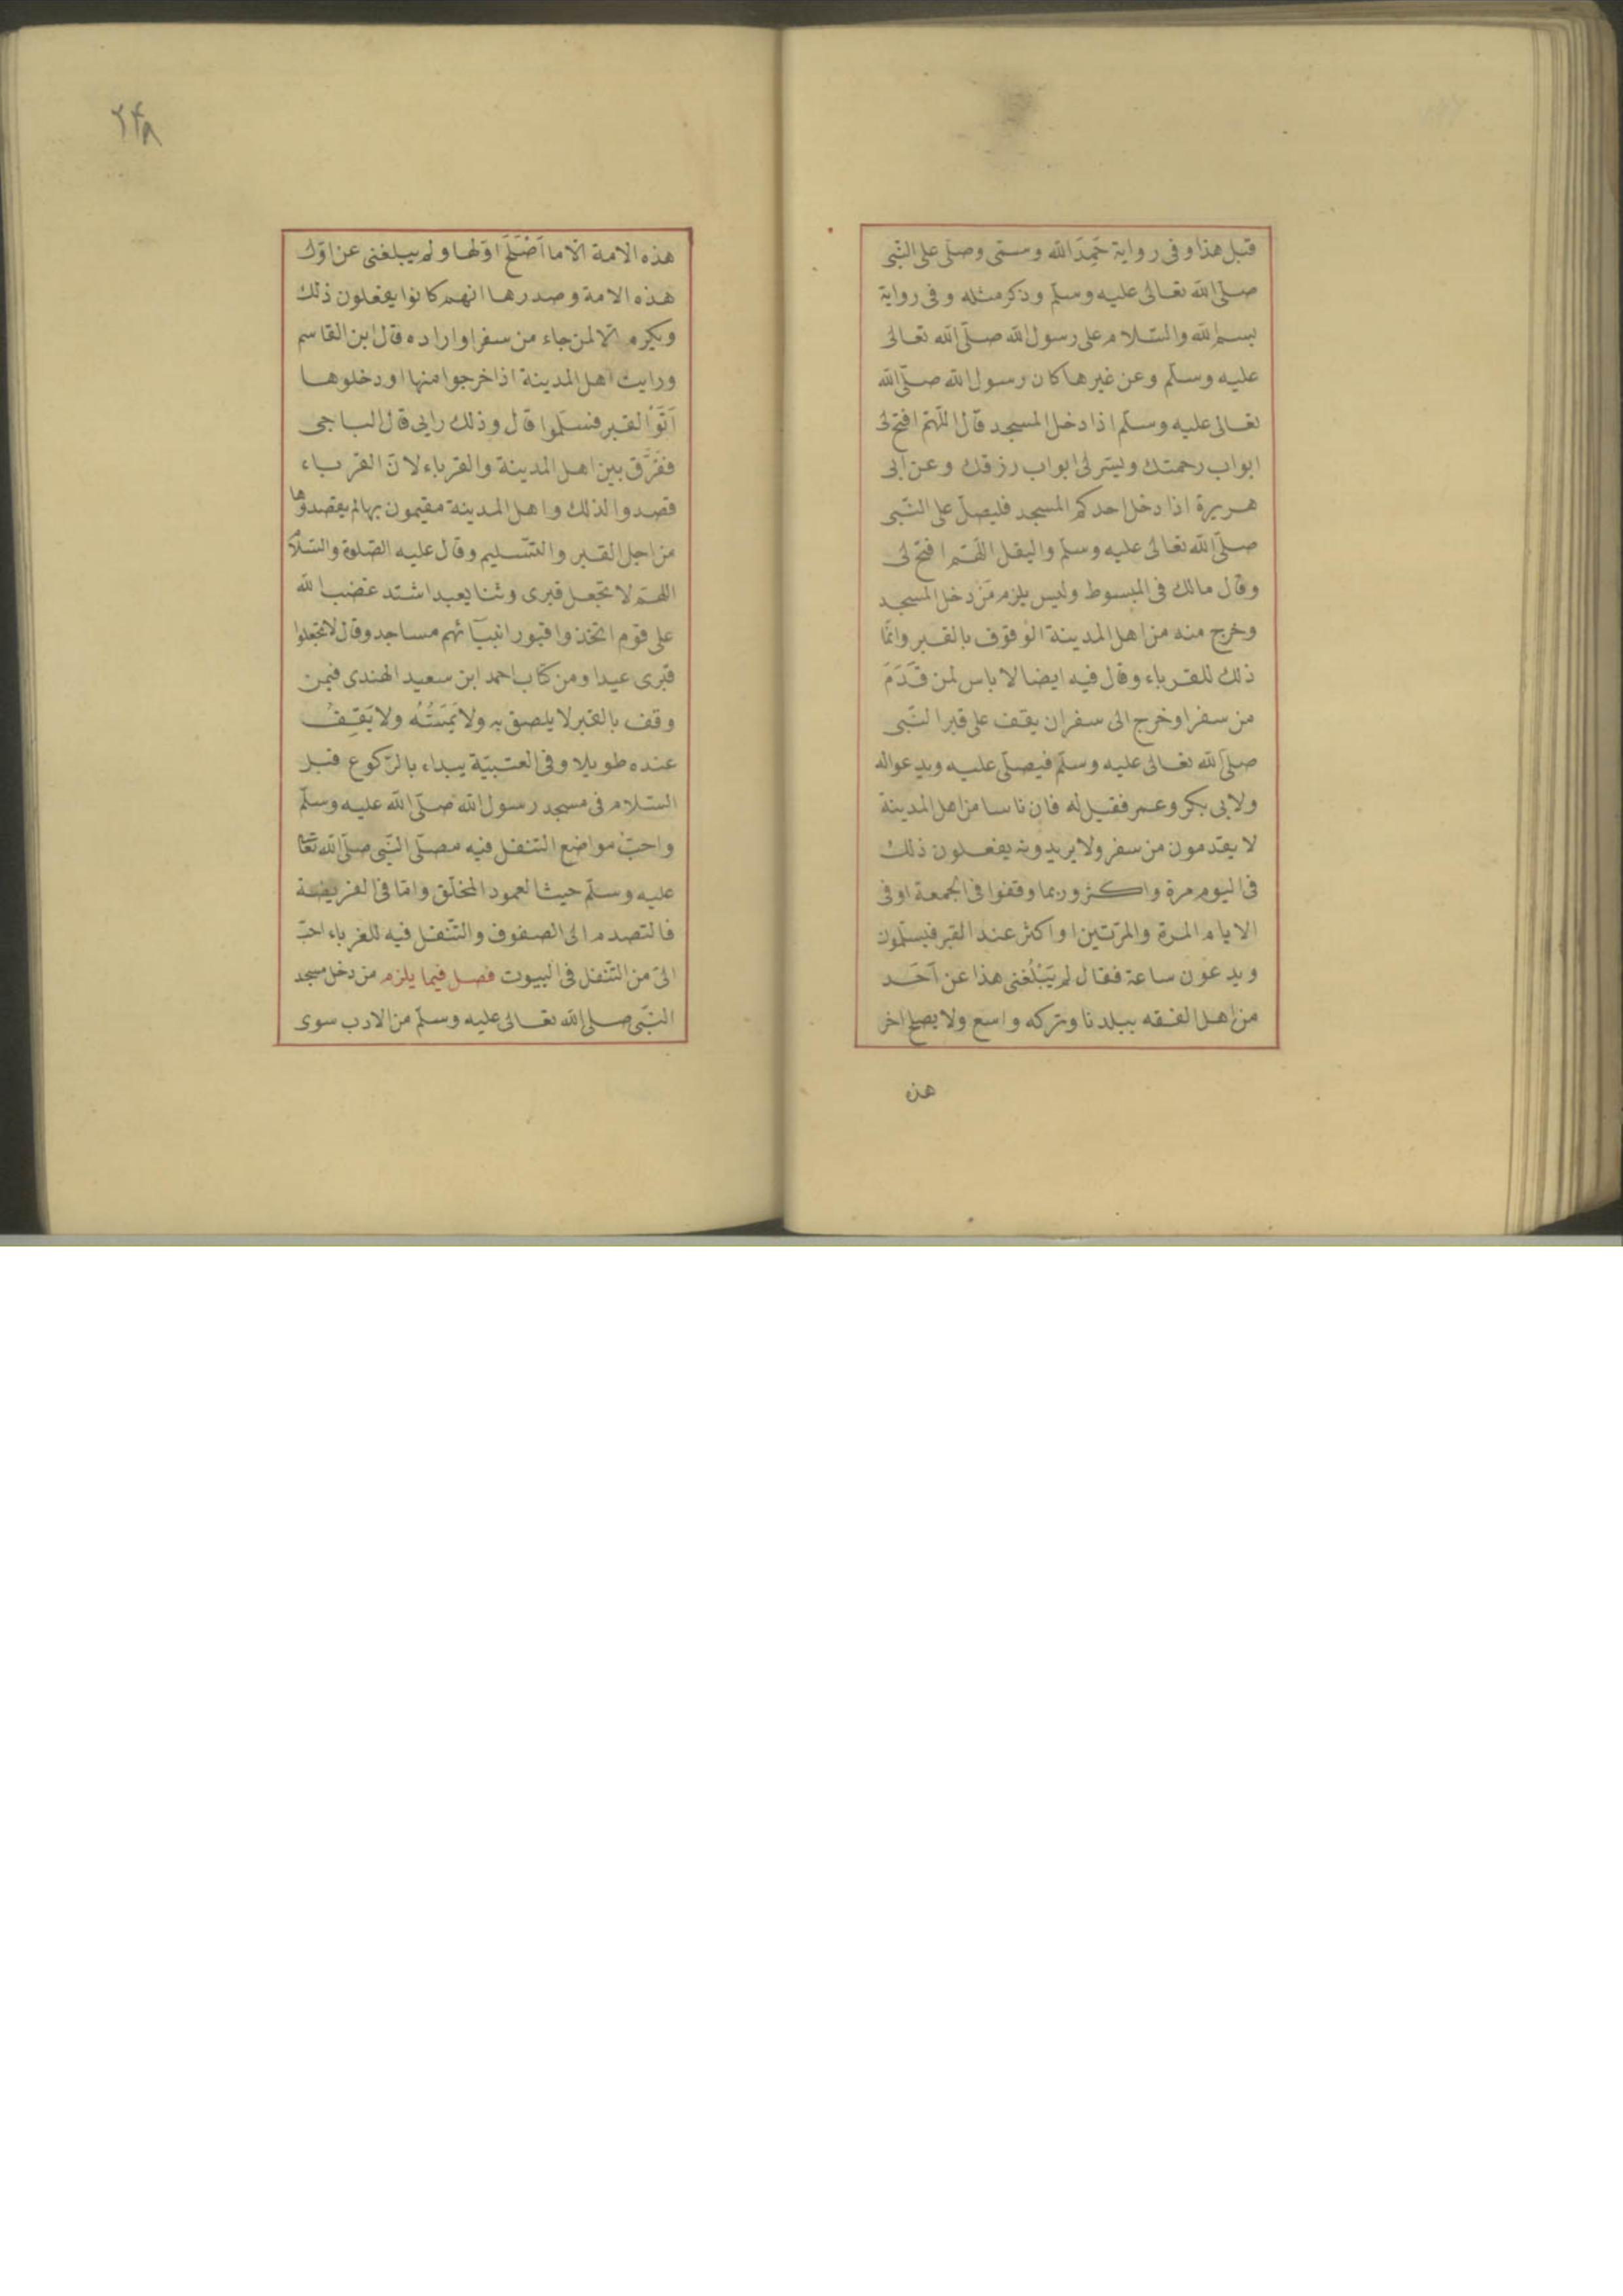 قبل هذا وفى رواية حَمِدَ الله وسمّى وصلّى على النّبى
صلّى الله تعالى عليه وسلّم وذكر مثله وفى رواية
بسم الله والسّلام على رسول الله صلّى الله تعالى
عليه وسلّم وعن غيرها كان رسول الله صلّى الله
تعالى عليه وسلّم اذا دخل المسجد قال اللّهمّ افتح لى
ابواب رحمتك ويسّر لى ابواب رزقك وعن ابى
هريرة اذا دخل احدكم المسجد فليصلّ على النّبى
صلّى الله تعالى عليه وسلّم واليقل اللّهمّ افتح لى
وقال مالك فى المبسوط وليس يلزم مَنْ دخل المسجد
وخرج منه من اهل المدينة الوُقوف بالقبر وانّما
ذلك للقرباء وقال فيه ايضا لا باس لمن قَدَمَ
من سفر او خرج الى سفر ان يقف على قبر النّبى
صلّى الله تعالى عليه وسلّم فيصلّى عليه ويدعو اله
ولابى بكر وعمر فقيل له فان ناسا من اهل المدينة
لا يقدمون من سفر ولا يريدونه يفعلون ذلك
فى اليوم مرة واكثر وربما وقفوا فى الجمعة او فى
الايام المرة والمرّتين او اكثر عند القبر فيسلّمون
ويدعون ساعة فقال لم يَبْلُغنى هذا عن اَحَد
من اهل الفقه ببلدنا وتركه واسع ولا يصلح اخر
هذه
٢٤٨
هذه الامة الّا ما اَصْلَحَ اوّلها ولم يبلغنى عن اوّل
هذه الامة وصدرها انهم كانوا يفعلون ذلك
ويكره الّا لمن جاء من سفر او اراده قال ابن القاسم
ورايت اهل المدينة اذا خرجوا منها او دخلوها
اَتَوُا القبر فسلّموا قال وذلك رايى قال الباجى
ففَرَّق بين اهل المدينة والقرباء لانّ القرباء
قصدوا لذلك واهل المدينة مقيمون بها لم يقصدوها
من اجل القبر والتّسليم وقال عليه الصّلوة والسّلام
اللهمّ لا تجعل قبرى وثنا يعبد اشتد غضب الله
على قوم اتخذوا قبور انبيآئهم مساجد وقال لا تجعلوا
قبرى عيدا ومن كتاب احمد ابن سعيد الهندى فيمن
وقف بالقبر لا يلصق به ولا يَمَسُّهُ ولا يَقِفُ
عنده طويلا وفى العتبيّة يبداء بالرّكوع قبل
السّلام فى مسجد رسول الله صلّى الله عليه وسلّم
واحبّ مواضع التنفل فيه مصلّى النّبى صلّى الله تعالى
عليه وسلّم حيث العمود المخلّق وامّا فى الفريضة
فالتصدم الى الصفوف والتّنفل فيه للغرباء احبّ
الىّ من التّنفل فى البيوت فصل فيما يلزم من دخل مسجد
النّبى صلى الله تعالى عليه وسلّم من الادب سوى